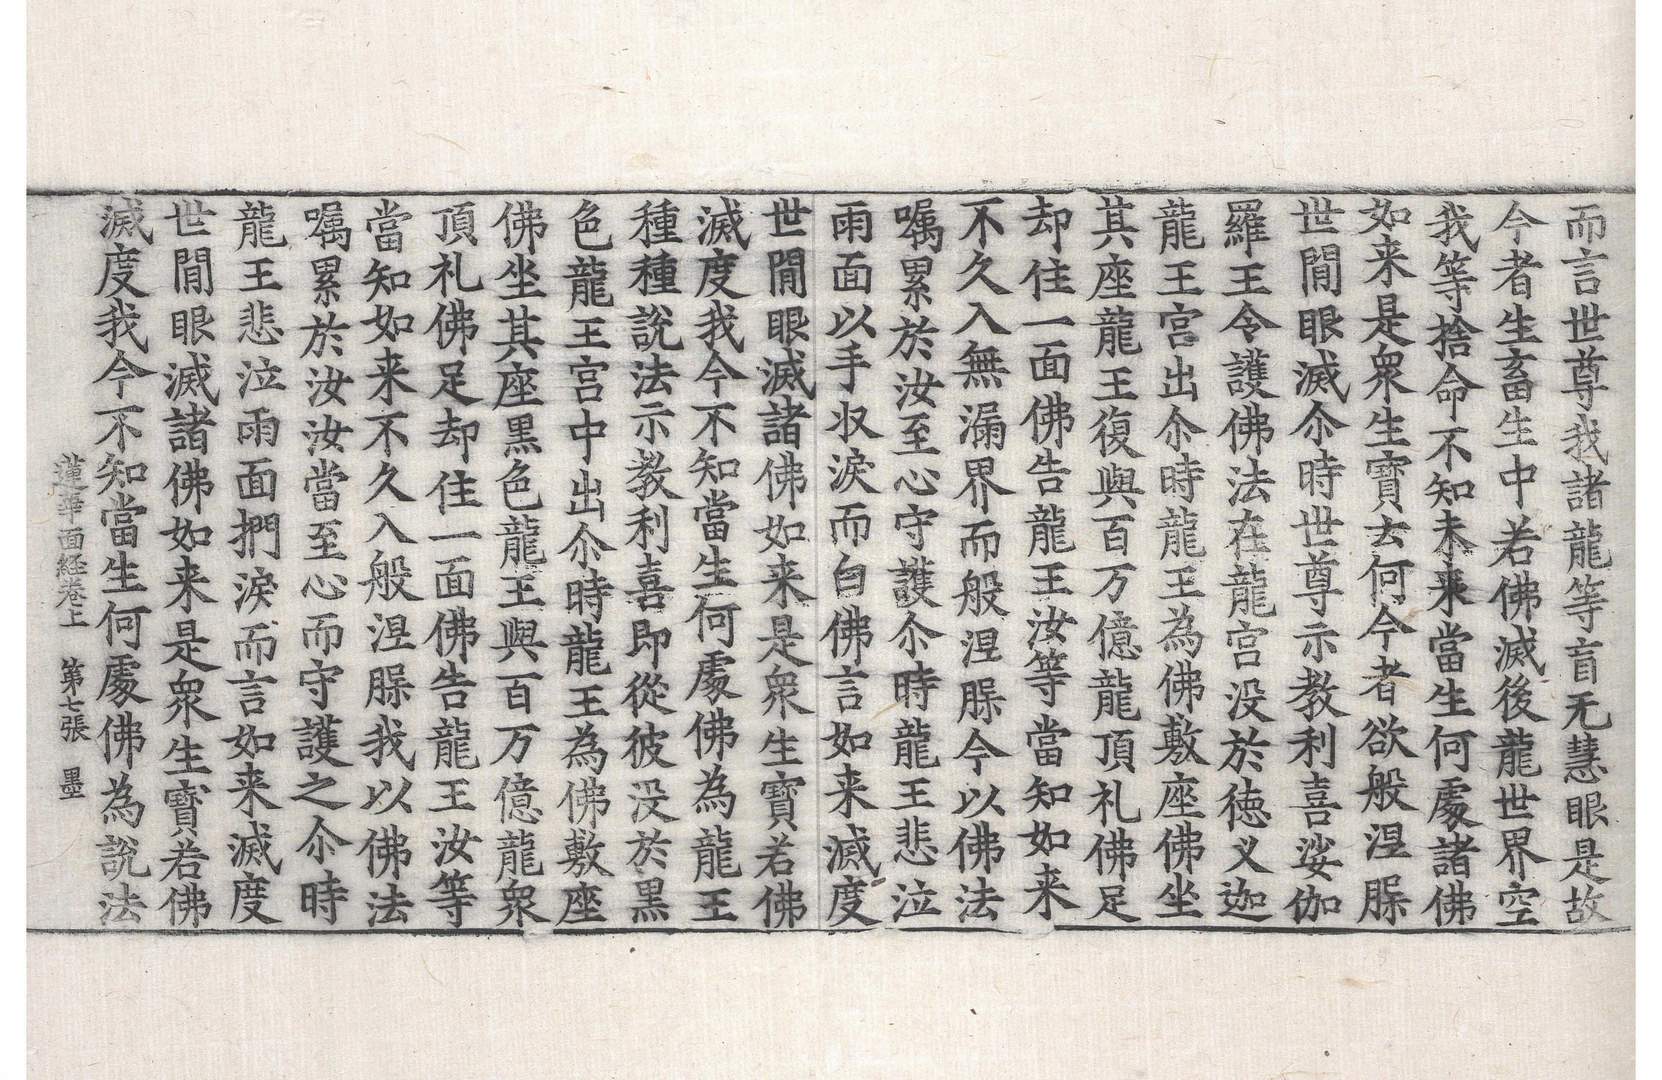 而言世尊我諸龍等盲无慧眼是故
今者生畜生中若佛滅後龍世界空
我等捨命不知未來當生何處諸佛
如来是衆生寳去何今者欲般涅槃
世間眼滅尒時世尊示教利喜娑伽
羅王令護佛法在龍宮没於徳义迦
龍王宮出尒時龍王為佛敷座佛坐
其座龍王復與百万億龍頂礼佛足
却住一面佛告龍王汝等當知如来
不久入無漏界而般涅槃今以佛法
嘱累於汝至心守護尒時龍王悲泣
雨面以手収淚而白佛言如来滅度
世間眼滅諸佛如来是衆生寳若佛
滅度我今不知當生何處佛為龍王
種種說法示教利喜即從彼没於黒
色龍王宮中出尒時龍王為佛敷座
佛坐其座黒色龍王與百万億龍衆
頂礼佛足却住一面佛告龍王汝等
當知如来不久入般涅槃我以佛法
嘱累於汝汝當至心而守護之尒時
龍王悲泣雨面捫淚而言如来滅度
世間眼滅諸佛如来是衆生寳若佛
滅度我今不知當生何處佛為說法
蓮華面経卷上 第七張 墨